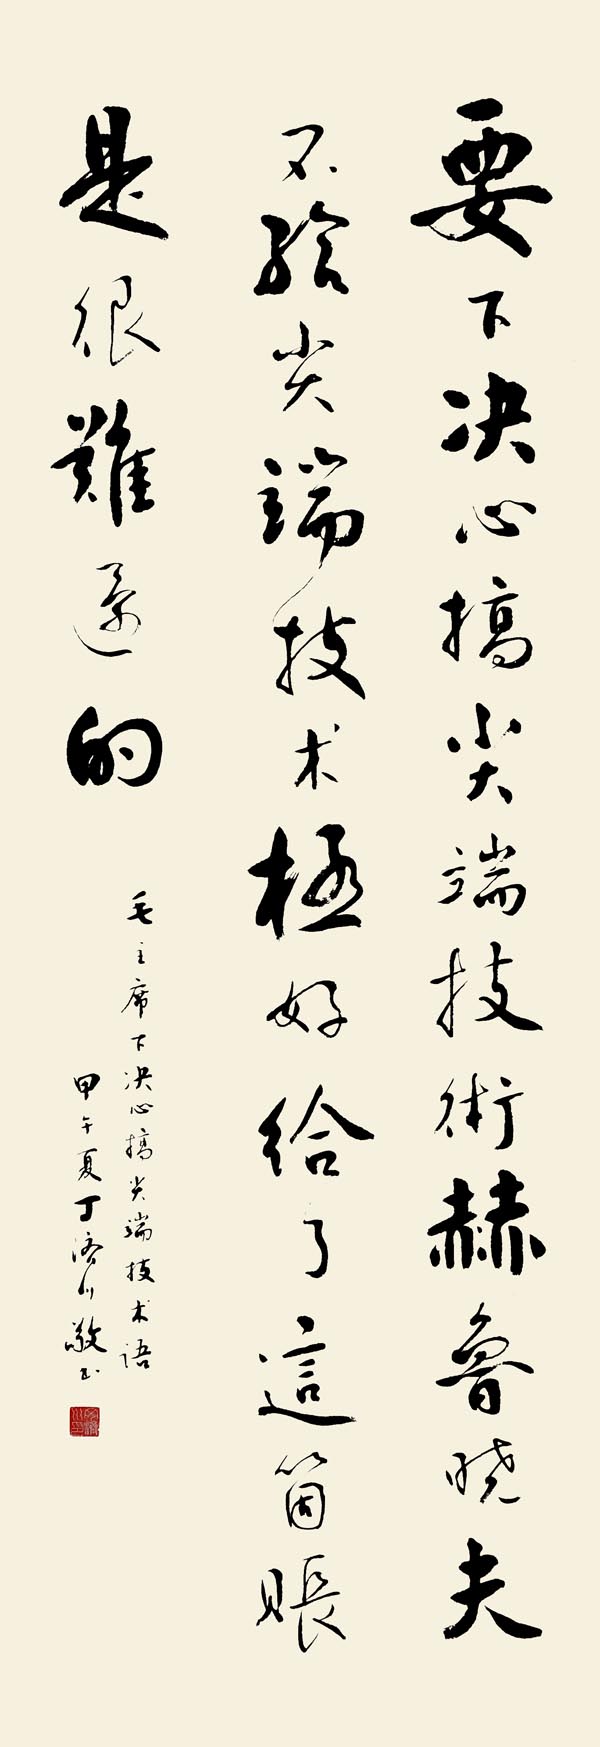 要下决心搞尖端技術赫魯晓夫
不给尖端技术極好给了這箇賬
是很難還的
毛主席下决心搞尖端技术语
甲午夏丁济川敬书